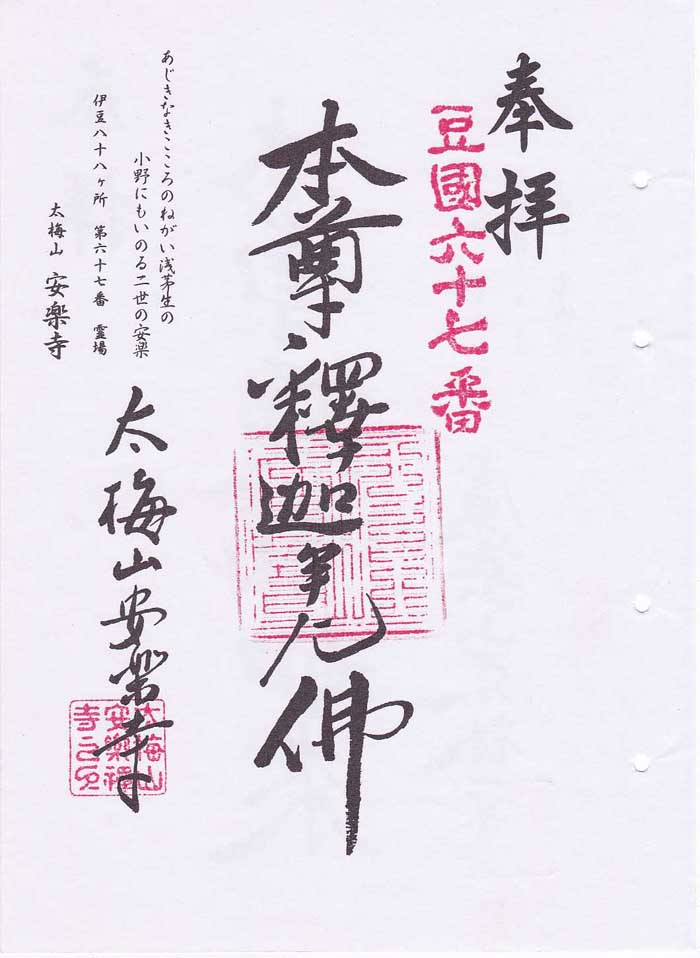 奉拝
豆國六十七番
本尊釋迦牟尼佛
あじきなきこころのねがい浅茅生の
小野にもいのる二世の安楽
伊豆八十八ヶ所　第六十七番　霊場
太梅山　安楽寺
太梅山安楽寺
太梅山
安樂禅
寺之印